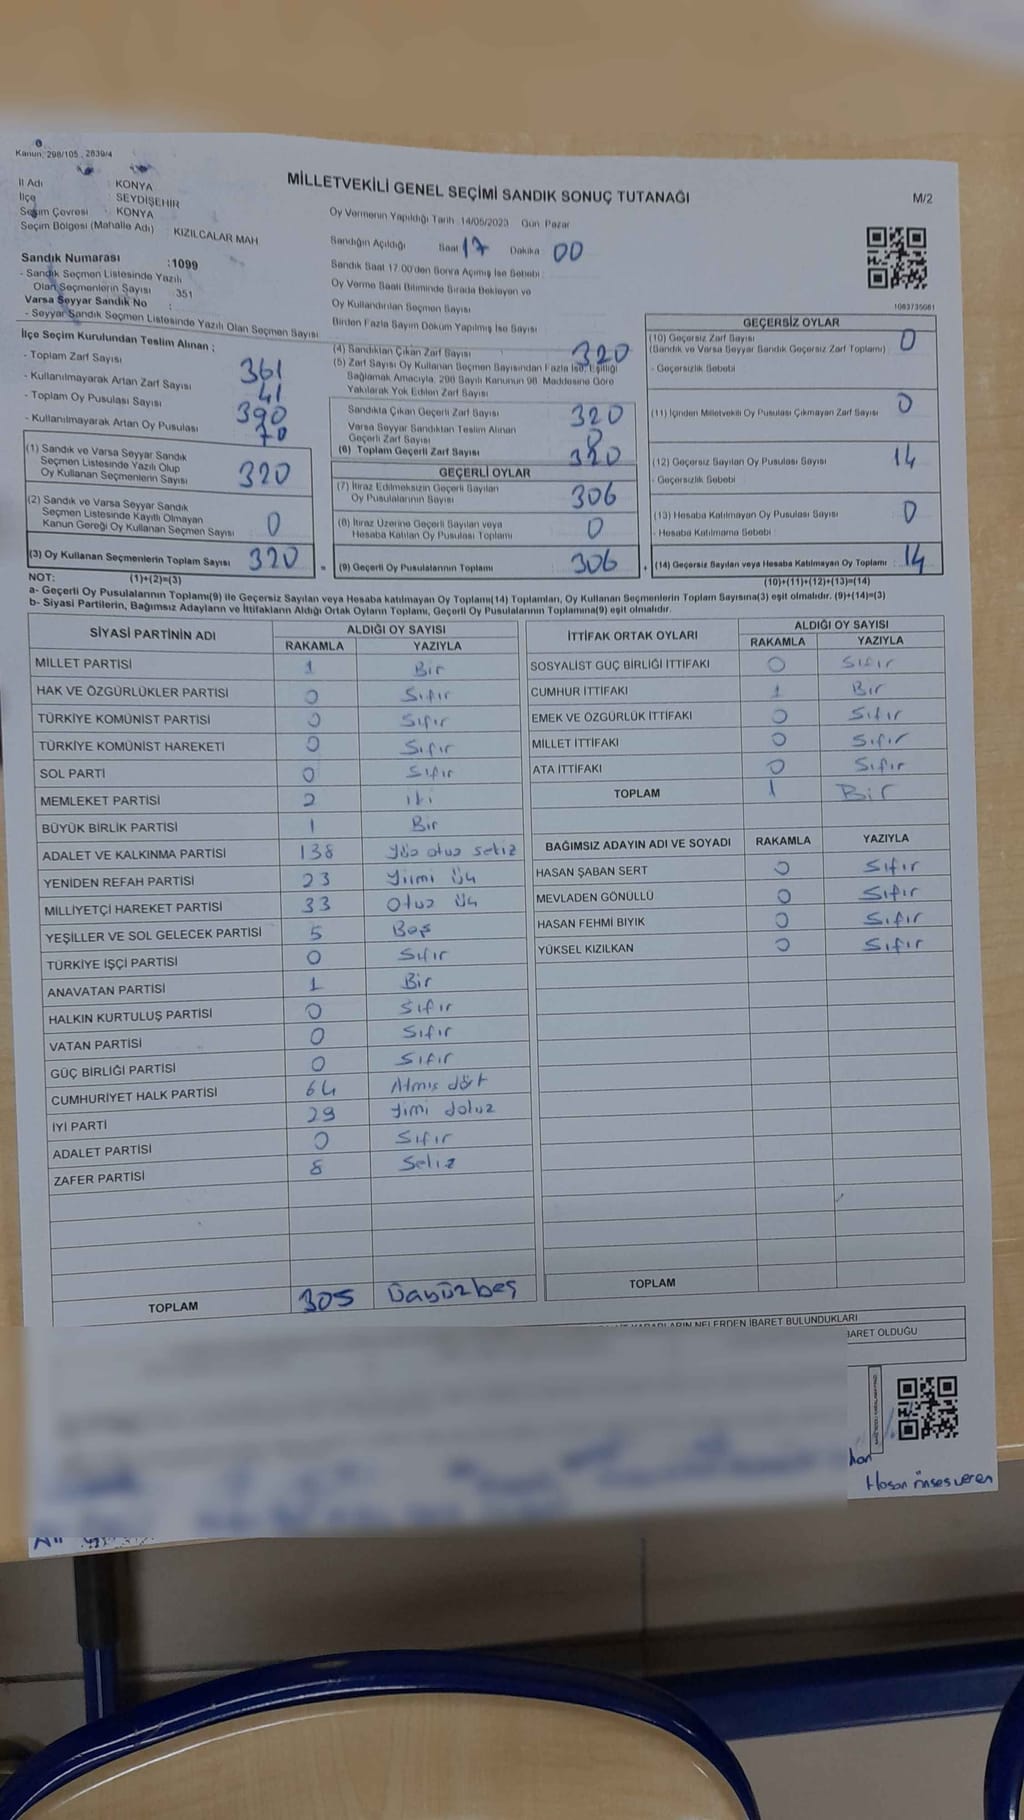 Kanun: 298/105, 2839/4
İl Adı : KONYA
İlçe : SEYDİŞEHİR
Seçim Çevresi : KONYA
Seçim Bölgesi (Mahalle Adı) : KIZILCALAR MAH
MİLLETVEKİLİ GENEL SEÇİMİ SANDIK SONUÇ TUTANAĞI
M/2
Oy Vermenin Yapıldığı Tarih : 14/05/2023 Gün: Pazar
Sandığın Açıldığı Saat 17 Dakika 00
Sandık Saat 17:00'den Sonra Açılmış İse Sebebi :
Oy Verme Saati Bitiminde Sırada Bekleyen ve
Oy Kullandırılan Seçmen Sayısı
Birden Fazla Sayım Döküm Yapılmış İse Sayısı
1063735081
Sandık Numarası :1099
- Sandık Seçmen Listesinde Yazılı
Olan Seçmenlerin Sayısı : 351
Varsa Seyyar Sandık No :
- Seyyar Sandık Seçmen Listesinde Yazılı Olan Seçmen Sayısı
İlçe Seçim Kurulundan Teslim Alınan :
- Toplam Zarf Sayısı 361
- Kullanılmayarak Artan Zarf Sayısı 41
- Toplam Oy Pusulası Sayısı 390
- Kullanılmayarak Artan Oy Pusulası 70
(1) Sandık ve Varsa Seyyar Sandık
Seçmen Listesinde Yazılı Olup
Oy Kullanan Seçmenlerin Sayısı 320
(2) Sandık ve Varsa Seyyar Sandık
Seçmen Listesinde Kayıtlı Olmayan
Kanun Gereği Oy Kullanan Seçmen Sayısı 0
(3) Oy Kullanan Seçmenlerin Toplam Sayısı 320
(4) Sandıktan Çıkan Zarf Sayısı 320
(5) Zarf Sayısı Oy Kullanan Seçmen Sayısından Fazla İse, Eşitliği
Sağlamak Amacıyla, 298 Sayılı Kanunun 98. Maddesine Göre
Yakılarak Yok Edilen Zarf Sayısı
Sandıkta Çıkan Geçerli Zarf Sayısı 320
Varsa Seyyar Sandıktan Teslim Alınan
Geçerli Zarf Sayısı 0
(6) Toplam Geçerli Zarf Sayısı 320
GEÇERLİ OYLAR
(7) İtiraz Edilmeksizin Geçerli Sayılan
Oy Pusulalarının Sayısı 306
(8) İtiraz Üzerine Geçerli Sayılan veya
Hesaba Katılan Oy Pusulası Toplamı 0
= (9) Geçerli Oy Pusulalarının Toplamı 306
GEÇERSİZ OYLAR
(10) Geçersiz Zarf Sayısı
(Sandık ve Varsa Seyyar Sandık Geçersiz Zarf Toplamı) 0
- Geçersizlik Sebebi
(11) İçinden Milletvekili Oy Pusulası Çıkmayan Zarf Sayısı 0
(12) Geçersiz Sayılan Oy Pusulası Sayısı 14
- Geçersizlik Sebebi
(13) Hesaba Katılmayan Oy Pusulası Sayısı 0
- Hesaba Katılmama Sebebi
+ (14) Geçersiz Sayılan veya Hesaba Katılmayan Oy Toplamı : 14
NOT: (1)+(2)=(3)
(10)+(11)+(12)+(13)=(14)
a- Geçerli Oy Pusulalarının Toplamı(9) ile Geçersiz Sayılan veya Hesaba katılmayan Oy Toplamı(14) Toplamları, Oy Kullanan Seçmenlerin Toplam Sayısına(3) eşit olmalıdır. (9)+(14)=(3)
b- Siyasi Partilerin, Bağımsız Adayların ve İttifakların Aldığı Ortak Oyların Toplamı, Geçerli Oy Pusulalarının Toplamına(9) eşit olmalıdır.
SİYASİ PARTİNİN ADI ALDIĞI OY SAYISI
RAKAMLA YAZIYLA
MİLLET PARTİSİ 1 Bir
HAK VE ÖZGÜRLÜKLER PARTİSİ 0 Sıfır
TÜRKİYE KOMÜNİST PARTİSİ 0 Sıfır
TÜRKİYE KOMÜNİST HAREKETİ 0 Sıfır
SOL PARTİ 0 Sıfır
MEMLEKET PARTİSİ 2 iki
BÜYÜK BİRLİK PARTİSİ 1 Bir
ADALET VE KALKINMA PARTİSİ 138 Yüz otuz sekiz
YENİDEN REFAH PARTİSİ 23 Yirmi üç
MİLLİYETÇİ HAREKET PARTİSİ 33 Otuz üç
YEŞİLLER VE SOL GELECEK PARTİSİ 5 Beş
TÜRKİYE İŞÇİ PARTİSİ 0 Sıfır
ANAVATAN PARTİSİ 1 Bir
HALKIN KURTULUŞ PARTİSİ 0 Sıfır
VATAN PARTİSİ 0 Sıfır
GÜÇ BİRLİĞİ PARTİSİ 0 Sıfır
CUMHURİYET HALK PARTİSİ 64 Atmış dört
İYİ PARTİ 29 Yimi dokuz
ADALET PARTİSİ 0 Sıfır
ZAFER PARTİSİ 8 Sekiz
TOPLAM 305 Üçyüzbeş
İTTİFAK ORTAK OYLARI ALDIĞI OY SAYISI
RAKAMLA YAZIYLA
SOSYALİST GÜÇ BİRLİĞİ İTTİFAKI 0 Sıfır
CUMHUR İTTİFAKI 1 Bir
EMEK VE ÖZGÜRLÜK İTTİFAKI 0 Sıfır
MİLLET İTTİFAKI 0 Sıfır
ATA İTTİFAKI 0 Sıfır
TOPLAM 1 Bir
BAĞIMSIZ ADAYIN ADI VE SOYADI RAKAMLA YAZIYLA
HASAN ŞABAN SERT 0 Sıfır
MEVLADEN GÖNÜLLÜ 0 Sıfır
HASAN FEHMİ BIYIK 0 Sıfır
YÜKSEL KIZILKAN 0 Sıfır
TOPLAM
NELERDEN İBARET BULUNDUKLARI
BARET OLDUĞU
Hasan Ünsesveren